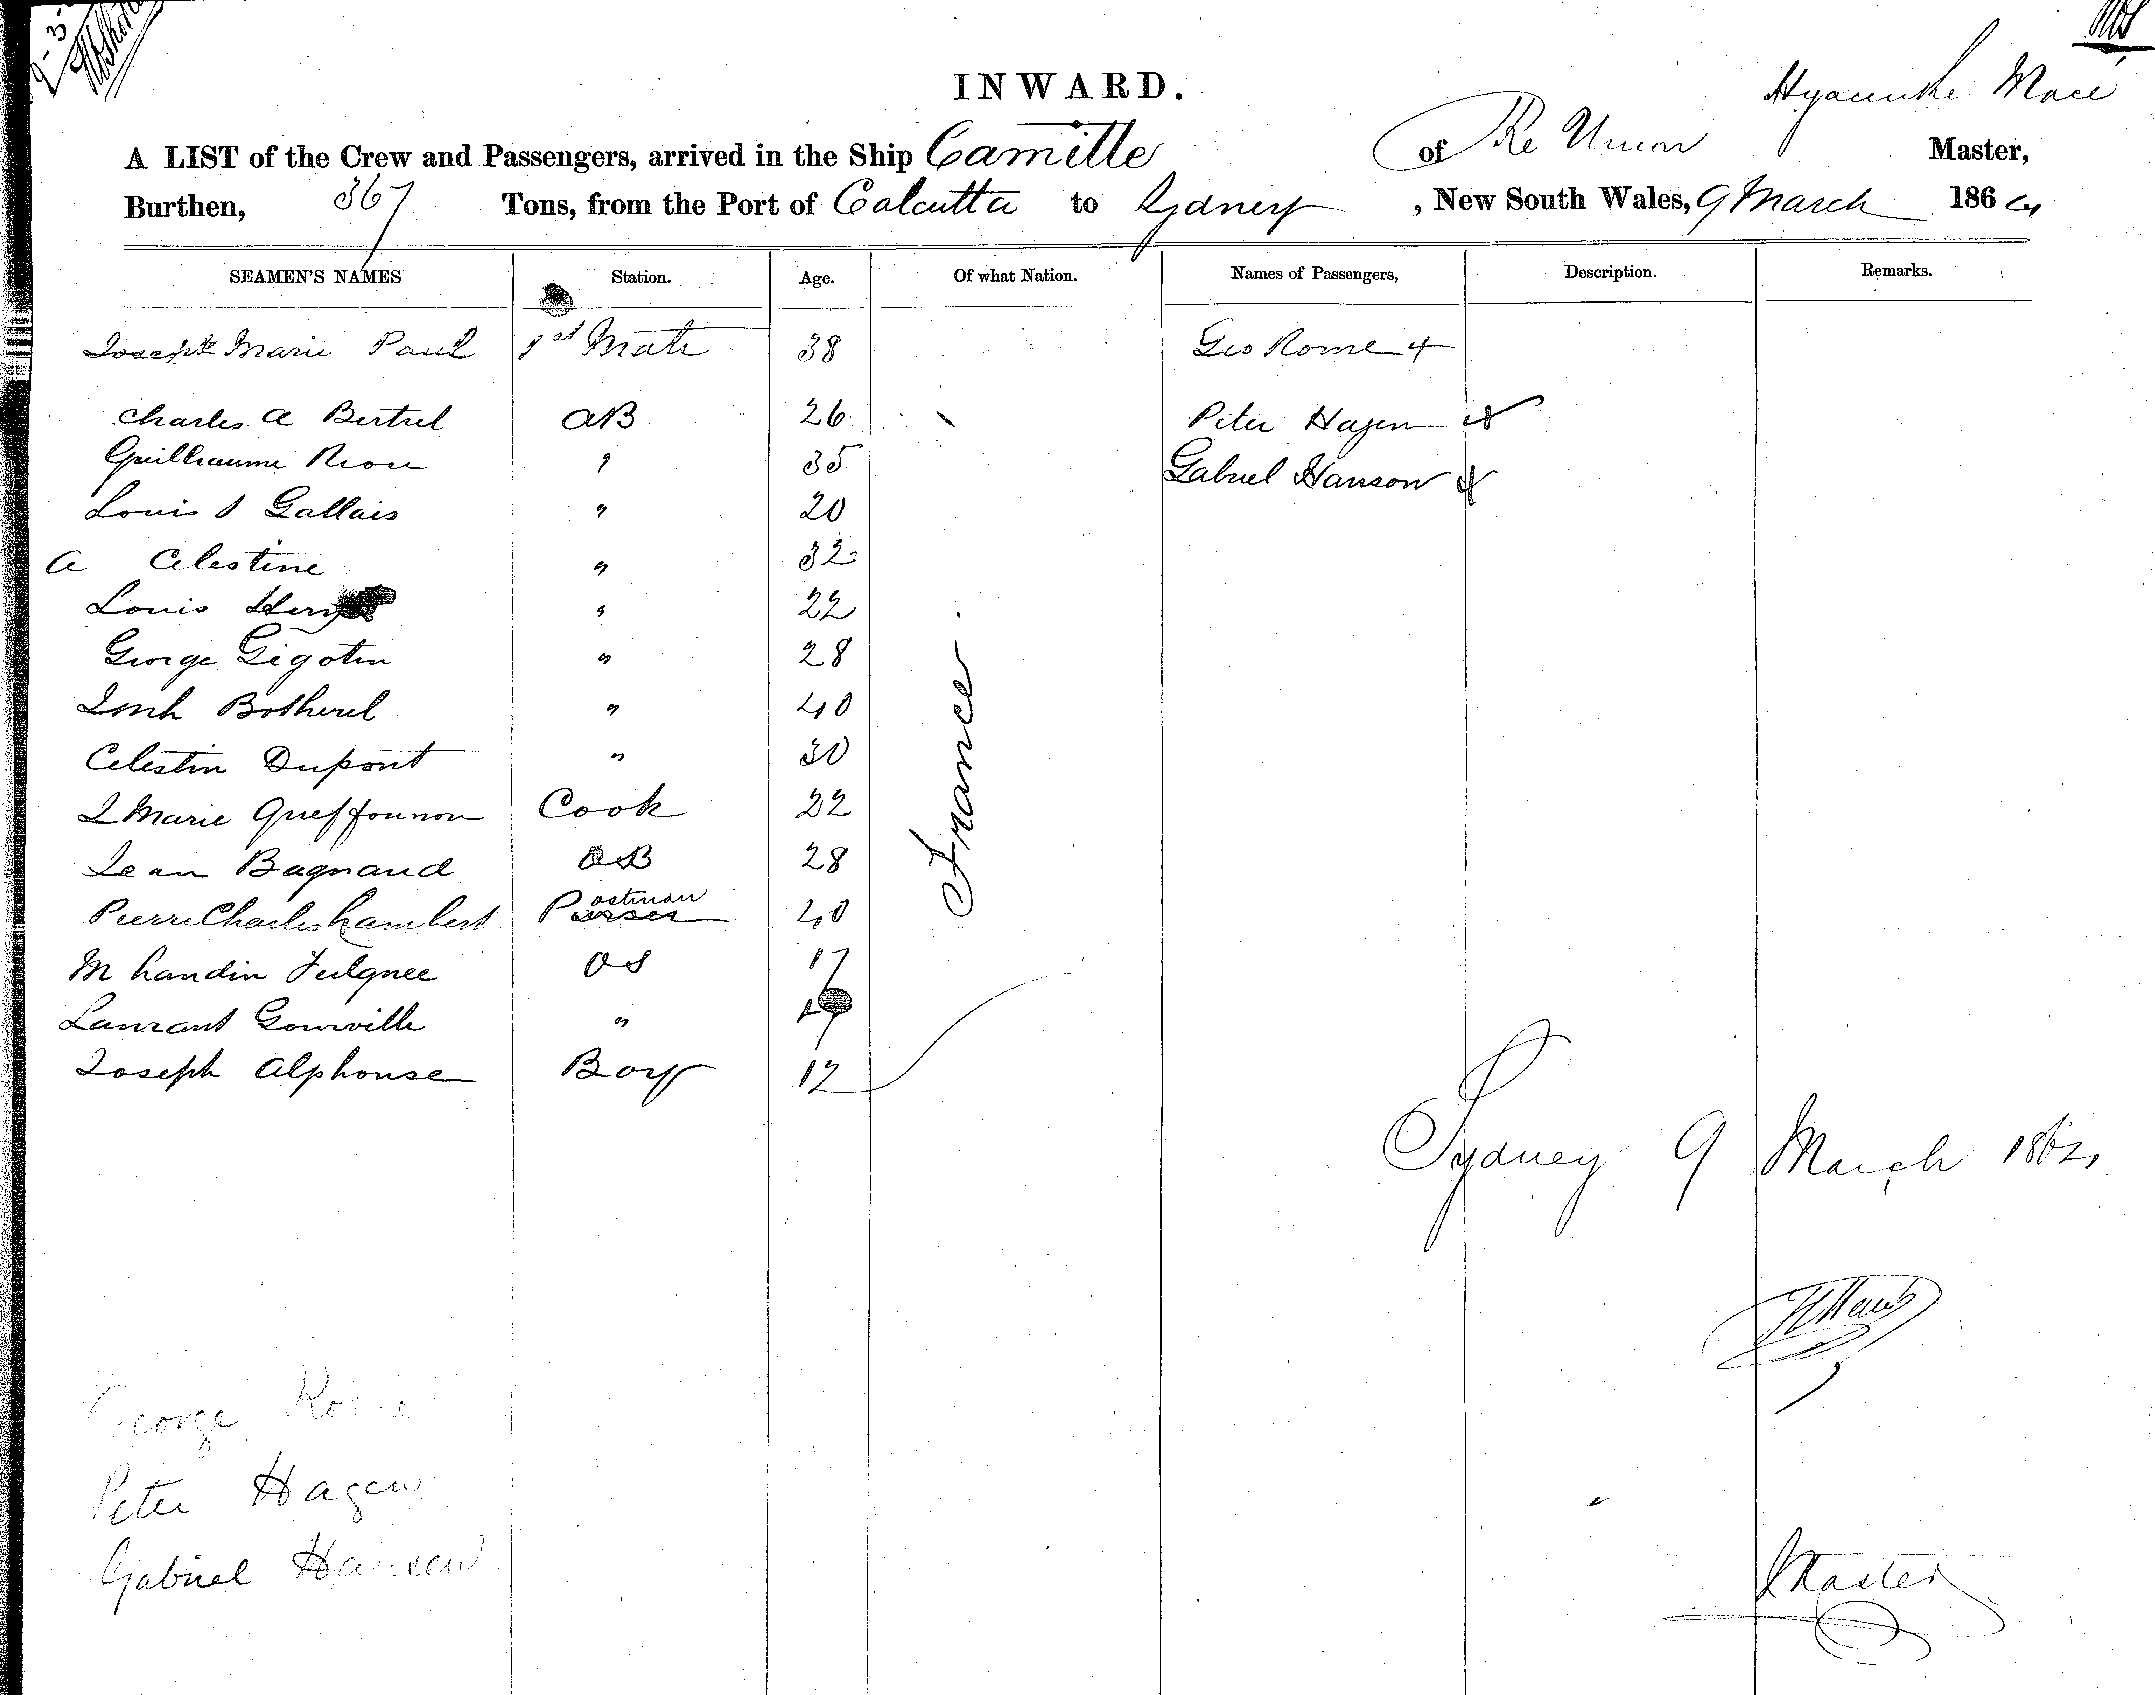 INWARD.
Hyacinthe Macé
A LIST of the Crew and Passengers, arrived in the Ship Camille of Re Union Master,
Burthen, 367 Tons, from the Port of Calcutta to Sydney, New South Wales, 9 March 1864
SEAMEN'S NAMES Station. Age. Of what Nation. Names of Passengers, Description. Remarks.
Joseph Marie Paul 1st Mate 38 Geo Rome
Charles A Bertrel AB 26 Peter Hagen
Guillaume 35 Gabriel Hanson
Louis Gallais " 20
A Celestine " 32
Louis " 22
George Gigotin " 28
Botherel " 40
Celestin Dupont " 30
France
J Marie Queffounnon Cook 22
Jean Bagnaud AB 28
Pierre Charles Lambert Postman 40
M Landin OS 17
Laurant Gourville "
Joseph Alphonse Boy 12
Sydney 9 March 1864
George Rome
Peter Hagen
Gabriel Hansen
Master